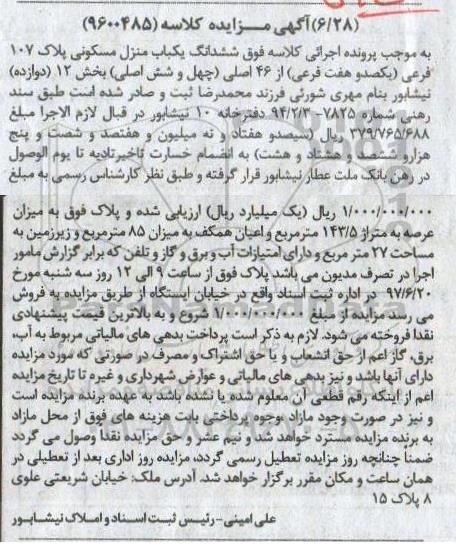 (۶/۲۸) آگهی مـزایده کلاسه (۹۶۰۰۴۸۵)
به موجب پرونده اجرائی کلاسه فوق ششدانگ یکباب منزل مسکونی پلاک ۱۰۷
فرعی (یکصدو هفت فرعی) از ۴۶ اصلی (چهل و شش اصلی) بخش ۱۲ (دوازده)
نیشابور بنام مهری شورئی فرزند محمدرضا ثبت و صادر شده است طبق سند
رهنی شماره ۷۸۲۵ - ۹۴/۲/۳ دفترخانه ۱۰ نیشابور در قبال لازم الاجرا مبلغ
۳۷۹/۷۶۵/۶۸۸ ریال (سیصدو هفتاد و نه میلیون و هفتصد و شصت و پنج
هزارو ششصد و هشتاد و هشت) به انضمام خسارت تاخیرتادیه تا یوم الوصول
در رهن بانک ملت عطار نیشابور قرار گرفته و طبق نظر کارشناس رسمی به مبلغ
۱/۰۰۰/۰۰۰/۰۰۰ ریال (یک میلیارد ریال) ارزیابی شده و پلاک فوق به میزان
عرصه به متراژ ۱۴۳/۵ مترمربع و اعیان همکف به میزان ۸۵ مترمربع و زیرزمین به
مساحت ۲۷ متر مربع و دارای امتیازات آب و برق و گاز و تلفن که برابر گزارش مامور
اجرا در تصرف مدیون می باشد پلاک فوق از ساعت ۹ الی ۱۲ روز سه شنبه مورخ
۹۷/۶/۲۰ در اداره ثبت اسناد واقع در خیابان ایستگاه از طریق مزایده به فروش
می رسد مزایده از مبلغ ۱/۰۰۰/۰۰۰/۰۰۰ شروع و به بالاترین قیمت پیشنهادی
نقدا فروخته می شود. لازم به ذکر است پرداخت بدهی های مالیاتی مربوط به آب،
برق، گاز اعم از حق انشعاب و یا حق اشتراک و مصرف در صورتی که مورد مزایده
دارای آنها باشد و نیز بدهی های مالیاتی و عوارض شهرداری و غیره تا تاریخ مزایده
اعم از اینکه رقم قطعی آن معلوم شده یا نشده باشد به عهده برنده مزایده است
و نیز در صورت وجود مازاد وجوه پرداختی بابت هزینه های فوق از محل مازاد
به برنده مزایده مسترد خواهد شد و نیم عشر و حق مزایده نقدا وصول می گردد
ضمنا چنانچه روز مزایده تعطیل رسمی گردد، مزایده روز اداری بعد از تعطیلی در
همان ساعت و مکان مقرر برگزار خواهد شد. آدرس ملک: خیابان شریعتی علوی
۸ پلاک ۱۵
علی امینی - رئیس ثبت اسناد و املاک نیشابور